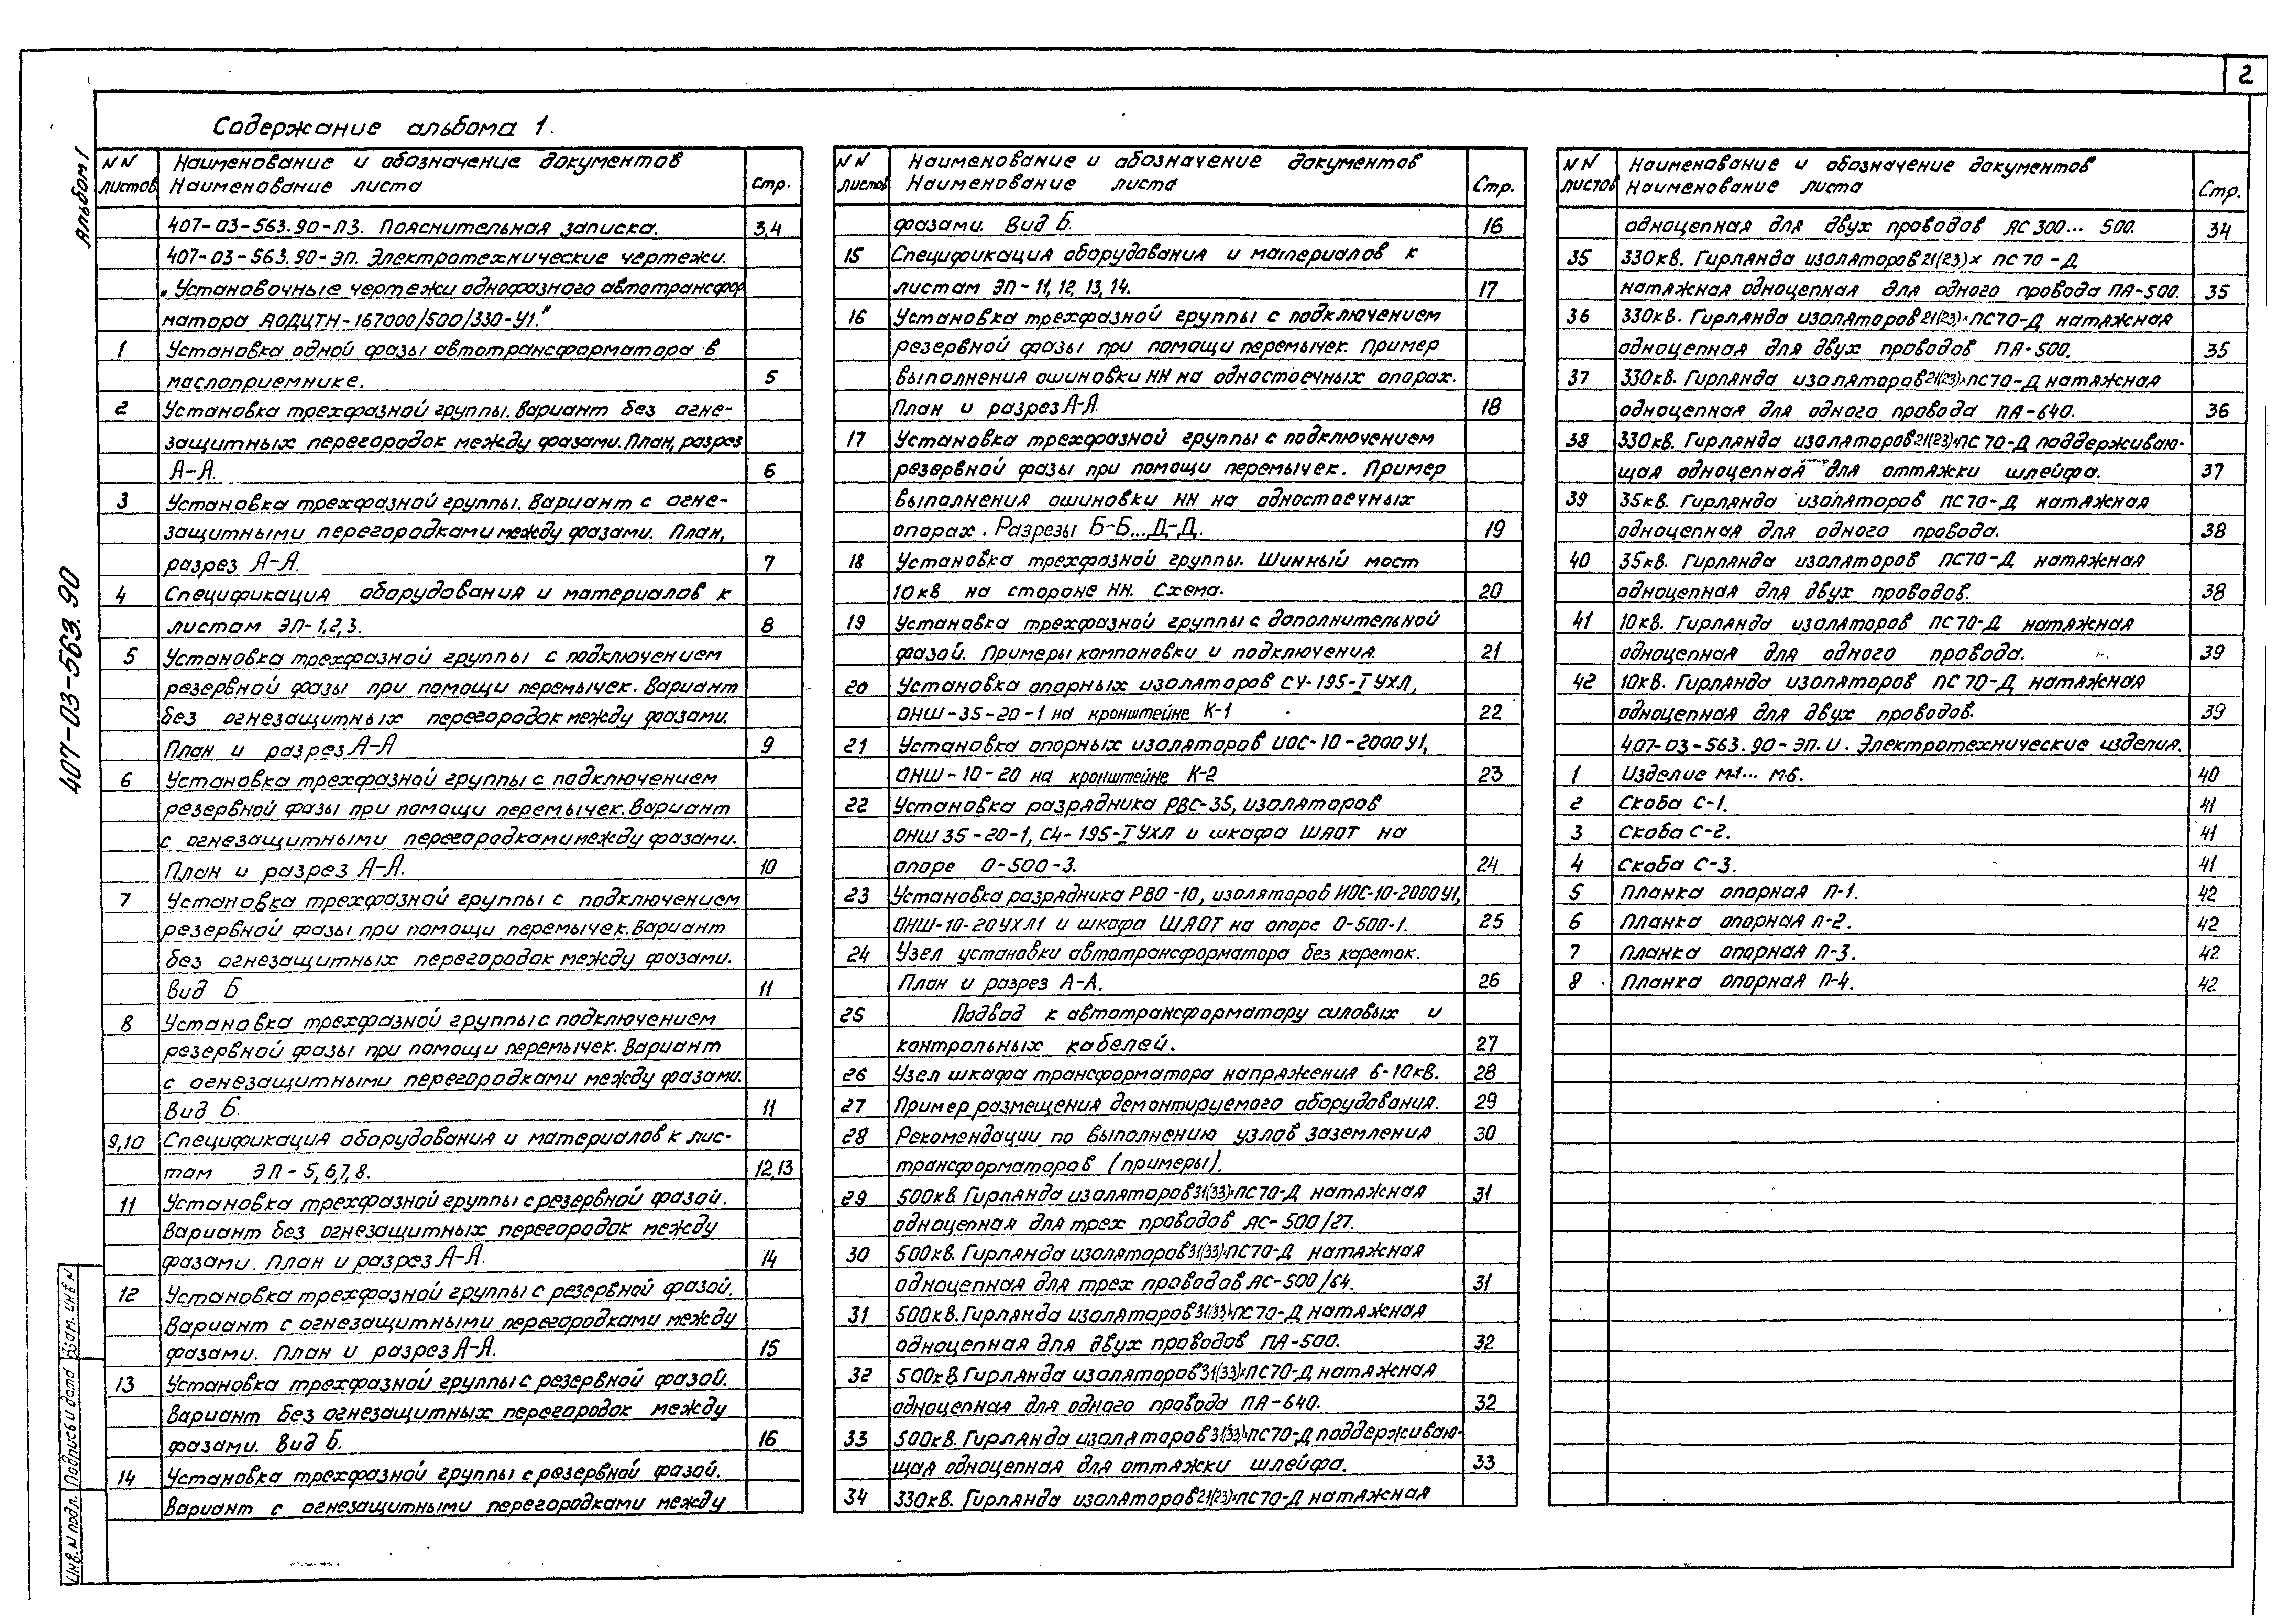 2
Альбом 1
407-03-563.90
Содержание альбома 1.
NN листов
Наименование и обозначение документов
Наименование листа
Стр.
407-03-563.90-ПЗ. Пояснительная записка. 3,4
407-03-563.90-ЭП. Электротехнические чертежи.
„Установочные чертежи однофазного автотрансфор
матора АОДЦТН-167000/500/330-У1."
1 Установка одной фазы автотрансформатора в
маслоприемнике. 5
2 Установка трехфазной группы. Вариант без огне-
защитных перегородок между фазами. План, разрез
А-А. 6
3 Установка трехфазной группы. Вариант с огне-
защитными перегородками между фазами. План,
разрез А-А. 7
4 Спецификация оборудования и материалов к
листам ЭП-1,2,3. 8
5 Установка трехфазной группы с подключением
резервной фазы при помощи перемычек. Вариант
без огнезащитных перегородок между фазами.
План и разрез А-А 9
6 Установка трехфазной группы с подключением
резервной фазы при помощи перемычек. Вариант
с огнезащитными перегородками между фазами.
План и разрез А-А. 10
7 Установка трехфазной группы с подключением
резервной фазы при помощи перемычек. Вариант
без огнезащитных перегородок между фазами.
Вид Б 11
8 Установка трехфазной группы с подключением
резервной фазы при помощи перемычек. Вариант
с огнезащитными перегородками между фазами.
Вид Б. 11
9,10 Спецификация оборудования и материалов к лис-
там ЭП-5,6,7,8. 12,13
11 Установка трехфазной группы с резервной фазой.
Вариант без огнезащитных перегородок между
фазами. План и разрез А-А. 14
12 Установка трехфазной группы с резервной фазой.
Вариант с огнезащитными перегородками между
фазами. План и разрез А-А. 15
13 Установка трехфазной группы с резервной фазой.
Вариант без огнезащитных перегородок между
фазами. Вид Б. 16
14 Установка трехфазной группы с резервной фазой.
Вариант с огнезащитными перегородками между
NN листов
Наименование и обозначение документов
Наименование листа
Стр.
фазами. Вид Б. 16
15 Спецификация оборудования и материалов к
листам ЭП-11, 12, 13, 14. 17
16 Установка трехфазной группы с подключением
резервной фазы при помощи перемычек. Пример
выполнения ошиновки НН на одностоечных опорах.
План и разрез А-А. 18
17 Установка трехфазной группы с подключением
резервной фазы при помощи перемычек. Пример
выполнения ошиновки НН на одностоечных
опорах. Разрезы Б-Б...Д-Д. 19
18 Установка трехфазной группы. Шинный мост
10кв на стороне НН. Схема. 20
19 Установка трехфазной группы с дополнительной
фазой. Примеры компоновки и подключения. 21
20 Установка опорных изоляторов СЧ-195-I УХЛ,
ОНШ-35-20-1 на кронштейне К-1 22
21 Установка опорных изоляторов ИОС-10-2000У1,
ОНШ-10-20 на кронштейне К-2 23
22 Установка разрядника РВС-35, изоляторов
ОНШ 35-20-1, С4-195-I УХЛ и шкафа ШАОТ на
опоре О-500-3. 24
23 Установка разрядника РВО-10, изоляторов ИОС-10-2000У1,
ОНШ-10-20УХЛ1 и шкафа ШАОТ на опоре О-500-1. 25
24 Узел установки автотрансформатора без кареток.
План и разрез А-А. 26
25 Подвод к автотрансформатору силовых и
контрольных кабелей. 27
26 Узел шкафа трансформатора напряжения 6-10кв. 28
27 Пример размещения демонтируемого оборудования. 29
28 Рекомендации по выполнению узлов заземления 30
трансформаторов (примеры).
29 500кв. Гирлянда изоляторов 31(33)×ПС70-Д натяжная 31
одноцепная для трех проводов АС-500/27.
30 500кв. Гирлянда изоляторов 31(33)×ПС70-Д натяжная
одноцепная для трех проводов АС-500/64. 31
31 500кв. Гирлянда изоляторов 31(33)×ПС70-Д натяжная
одноцепная для двух проводов ПА-500. 32
32 500кв. Гирлянда изоляторов 31(33)×ПС70-Д натяжная
одноцепная для одного провода ПА-640. 32
33 500кв. Гирлянда изоляторов 31(33)×ПС70-Д поддерживаю-
щая одноцепная для оттяжки шлейфа. 33
34 330кв. Гирлянда изоляторов 21(23)×ПС70-Д натяжная
NN листов
Наименование и обозначение документов
Наименование листа
Стр.
одноцепная для двух проводов АС 300... 500. 34
35 330кв. Гирлянда изоляторов 21(23)× ПС 70-Д
натяжная одноцепная для одного провода ПА-500. 35
36 330кв. Гирлянда изоляторов 21(23)×ПС70-Д натяжная
одноцепная для двух проводов ПА-500. 35
37 330кв. Гирлянда изоляторов 21(23)×ПС70-Д натяжная
одноцепная для одного провода ПА-640. 36
38 330кв. Гирлянда изоляторов 21(23)×ПС 70-Д поддерживаю-
щая одноцепная для оттяжки шлейфа. 37
39 35кв. Гирлянда изоляторов ПС70-Д натяжная
одноцепная для одного провода. 38
40 35кв. Гирлянда изоляторов ПС70-Д натяжная
одноцепная для двух проводов. 38
41 10кв. Гирлянда изоляторов ПС70-Д натяжная
одноцепная для одного провода. 39
42 10кв. Гирлянда изоляторов ПС 70-Д натяжная
одноцепная для двух проводов. 39
407-03-563.90-ЭП.И. Электротехнические изделия.
1 Изделие М-1... М-6. 40
2 Скоба С-1. 41
3 Скоба С-2. 41
4 Скоба С-3. 41
5 Планка опорная П-1. 42
6 Планка опорная П-2. 42
7 Планка опорная П-3. 42
8 Планка опорная П-4. 42
Инв. N подл. Подпись и дата Взам. инв N